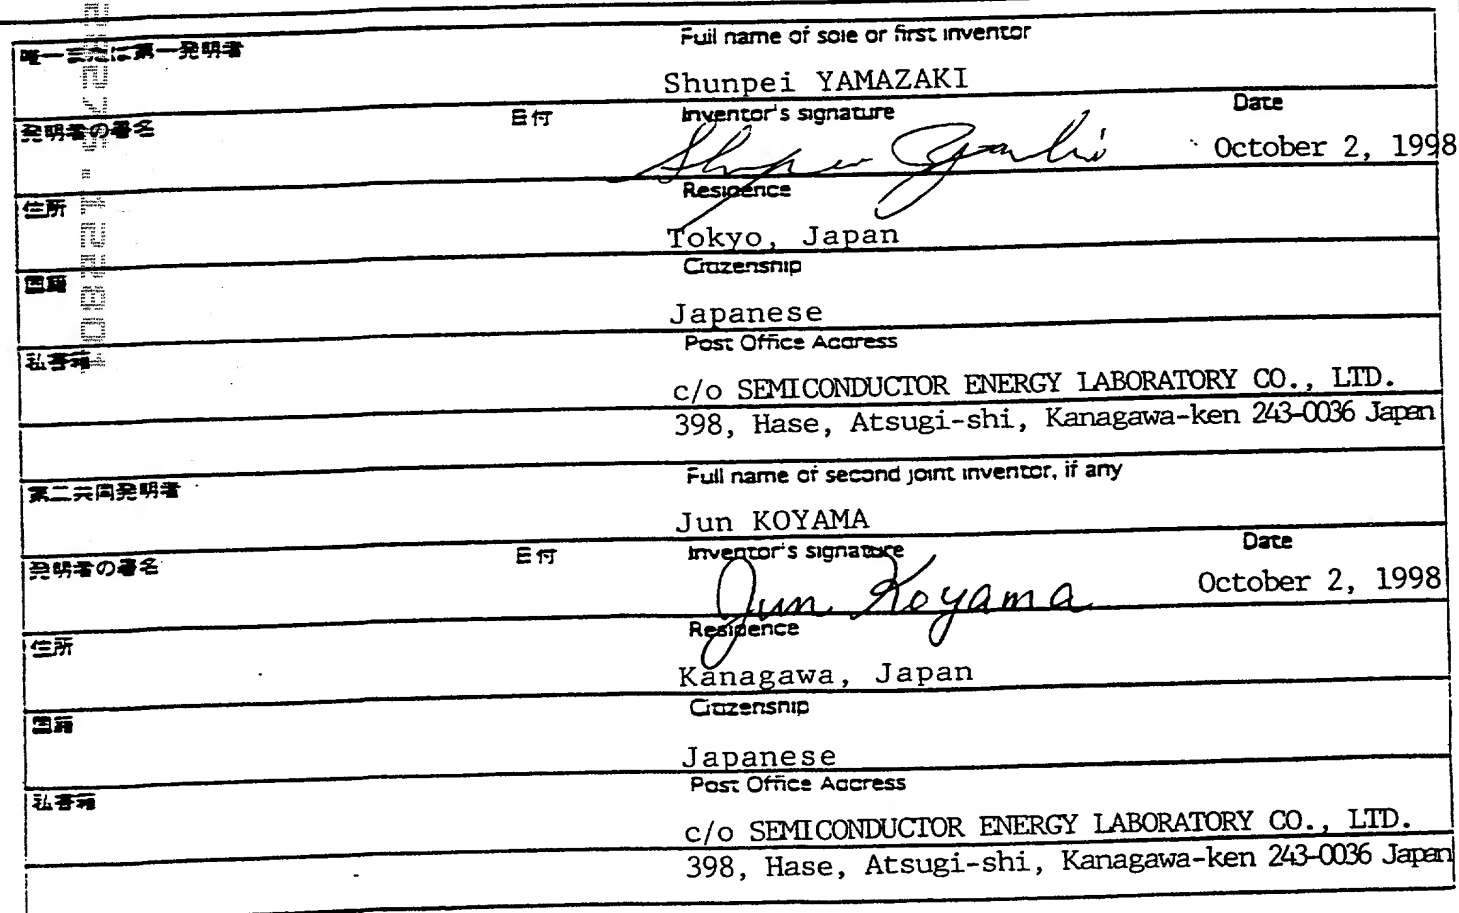 唯一または第一発明者
Full name of sole or first inventor
Shunpei YAMAZAKI
発明者の署名 日付 Inventor's signature Date
October 2, 1998
住所 Residence
Tokyo, Japan
国籍 Citizenship
Japanese
私書箱 Post Office Address
c/o SEMICONDUCTOR ENERGY LABORATORY CO., LTD.
398, Hase, Atsugi-shi, Kanagawa-ken 243-0036 Japan
第二共同発明者 Full name of second joint inventor, if any
Jun KOYAMA
発明者の署名 日付 Inventor's signature Date
Jun Koyama October 2, 1998
住所 Residence
Kanagawa, Japan
国籍 Citizenship
Japanese
私書箱 Post Office Address
c/o SEMICONDUCTOR ENERGY LABORATORY CO., LTD.
398, Hase, Atsugi-shi, Kanagawa-ken 243-0036 Japan